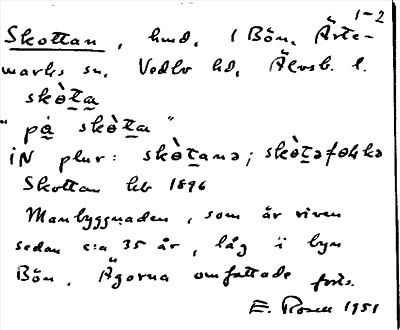 1-2
Skottan, hmd, i Bön, Ärte-
marks sn, Vedbo hd, Älvsb. l.
skò̀ta
"på skò̀ta"
iN plur: skò̀tanə; skò̀təfəlkə
Skottan hb 1896
Manbyggnaden, som är riven
sedan c:a 35 år, låg i byn
Bön. Ägorna omfattade forts.
E. Rosell 1951